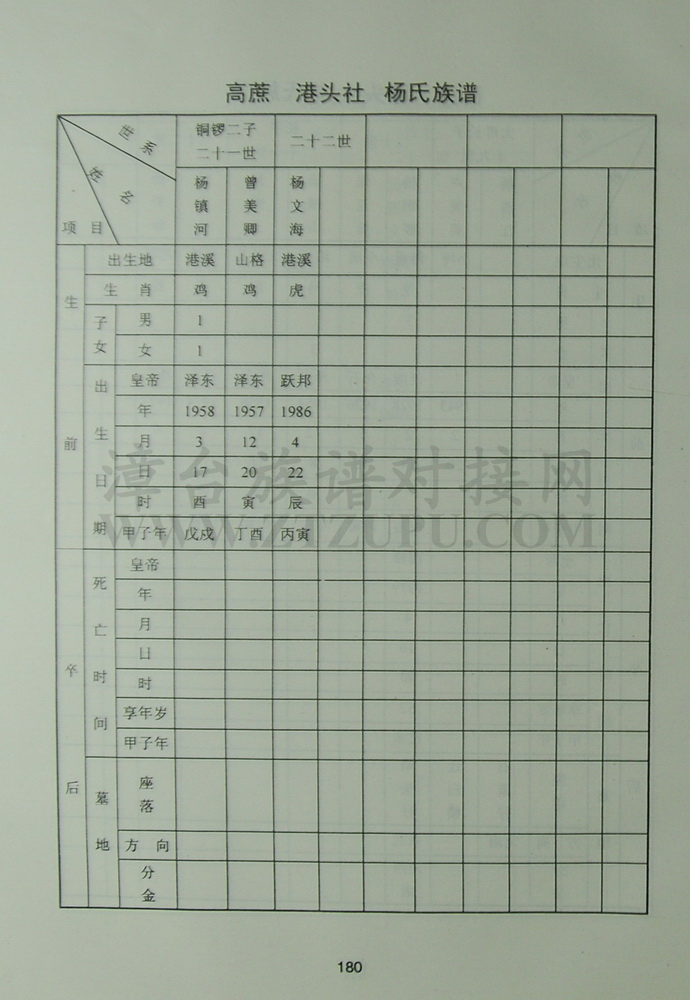 高蔗 港头社 杨氏族谱
世系 铜锣二子 二十一世 二十二世
姓名 杨镇河 曾美卿 杨文海
项目
生前 出生地 港溪 山格 港溪
生肖 鸡 鸡 虎
子女 男 1
女 1
出生日期 皇帝 泽东 泽东 跃邦
年 1958 1957 1986
月 3 12 4
日 17 20 22
时 酉 寅 辰
甲子年 戊戌 丁酉 丙寅
卒后 死亡时间 皇帝
年
月
日
时
享年岁
甲子年
墓地 座落
方向
分金
漳台族谱对接网
WWW.ZTZUPU.COM
180